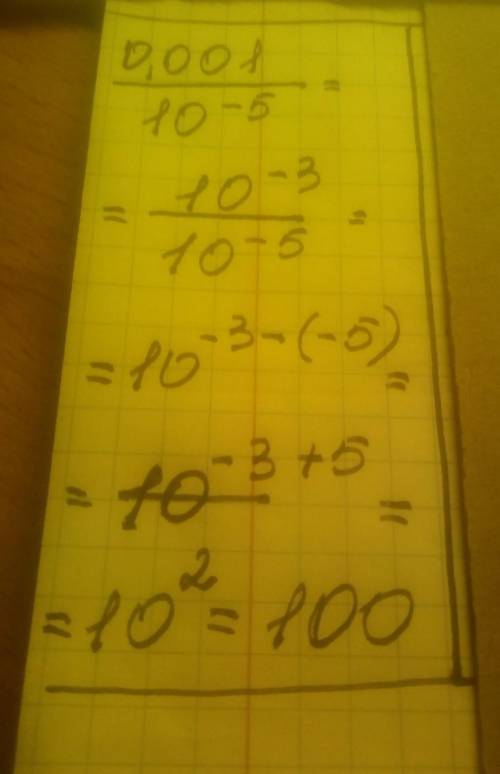 0,001 / 10⁻⁵ =
= 10⁻³ / 10⁻⁵ =
= 10⁻³⁻⁽⁻⁵⁾ =
= 10⁻³⁺⁵ =
= 10² = 100